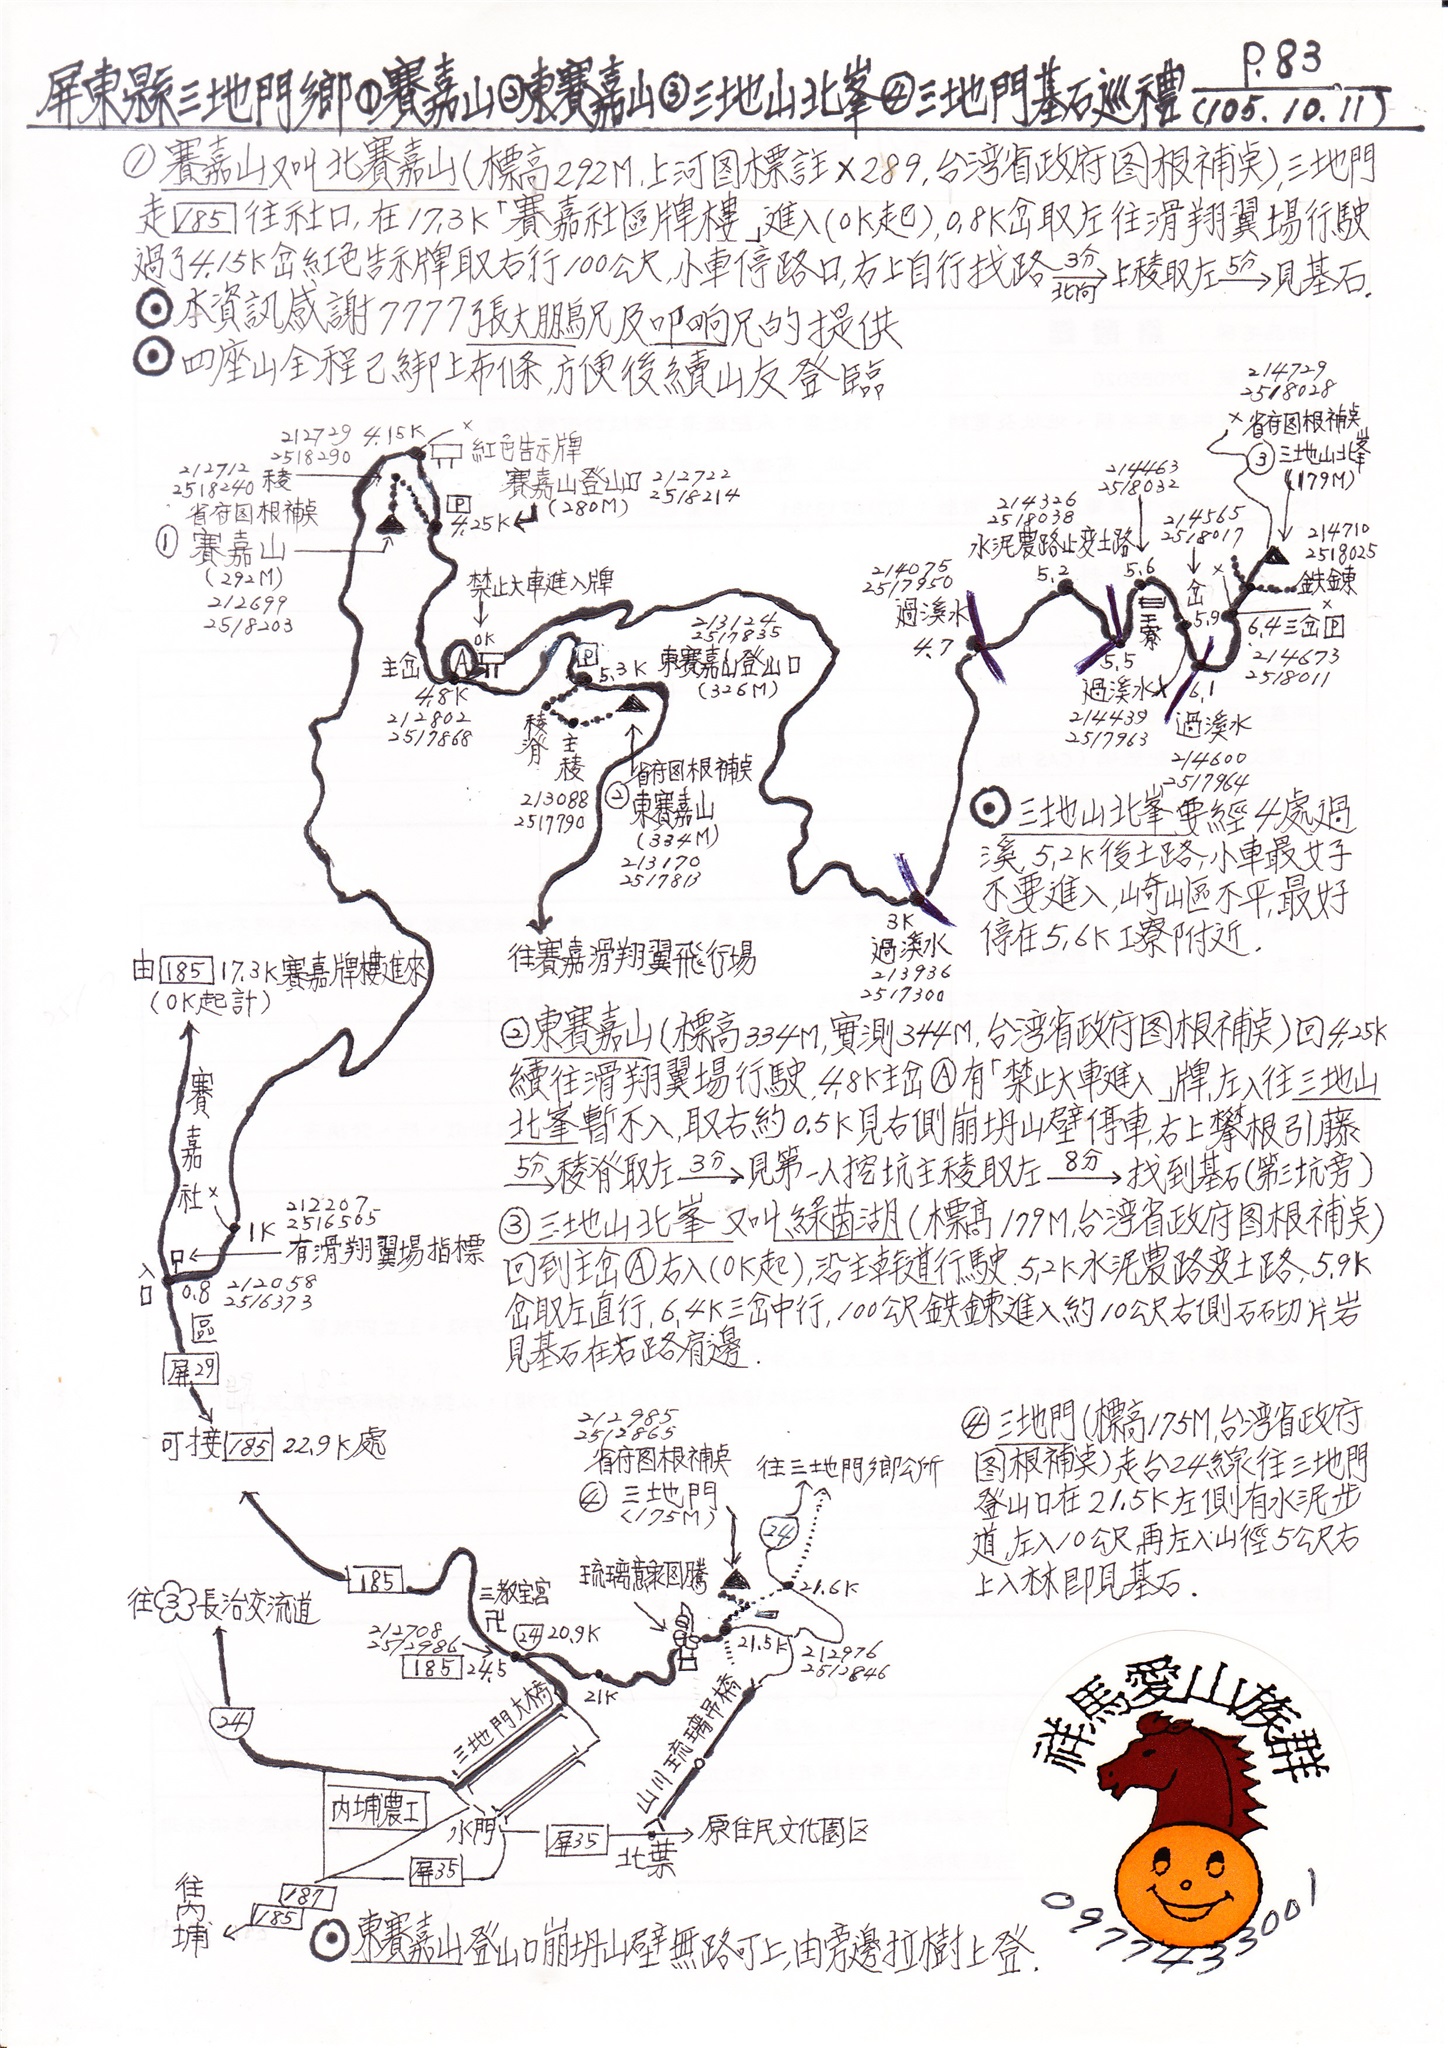 屏東縣三地門鄉①賽嘉山②東賽嘉山③三地山北峯④三地門基石巡禮
P.83
(105.10.11)
① 賽嘉山又叫北賽嘉山(標高292M,上河図標註×289,台湾省政府図根補桌),三地門
走185往社口,在17.3K「賽嘉社區牌樓」進入(0K起),0.8K岔取左往滑翔翼場行駛
過了4.15K岔紅色告示牌取右行100公尺,小車停路口,右上自行找路 3分 北向 上稜取左 5分 見基石.
⊙本資訊感謝7777張大鵬兄及叩响兄的提供
⊙四座山全程已綁上布條,方便後續山友登臨
212729
2518290
4.15K
×
紅色告示牌
212712
2518240 稜
省府図根補桌
① 賽嘉山
(292M)
212699
2518203
P
4.25K
賽嘉山登山口
(280M)
212722
2518214
禁止大車進入牌
0K
主岔
A
4.8K
212802
2517868
P
5.3K
213124
2517835
東賽嘉山登山口
(326M)
稜脊
主稜
213088
2517790
省府図根補桌
② 東賽嘉山
(334M)
213170
2517813
往賽嘉滑翔翼飛行場
3K
過溪水
213936
2517300
214075
2517950
過溪水
4.7
214326
2518038
水泥農路止変土路
5.2
214463
2518032
5.6
工寮
5.5
過溪水
214439
2517963
214565
2518017
岔
5.9
×
6.1
過溪水
214600
2517964
214729
2518028
×省府図根補桌
③ 三地山北峯
(179M)
214710
2518025
鉄鍊
6.4三岔P
214673
2518011
⊙三地山北峯要經4處過
溪,5.2K後土路,小車最好
不要進入,崎嶇不平,最好
停在5.6K工寮附近.
由185 17.3K賽嘉牌樓進來
(0K起計)
賽嘉社區
×
1K
212207
2516505
有滑翔翼場指標
入口
0.8
212058
2516373
屏29
可接185 22.9K處
②東賽嘉山(標高334M,實測344M,台湾省政府図根補桌)回4.25K
續往滑翔翼場行駛,4.8K主岔Ⓐ有「禁止大車進入」牌,左入往三地山
北峯暫不入,取右約0.5K見右側崩坍山壁停車,右上攀根引藤
5分 稜脊取左 3分 見第一人挖坑主稜取左 8分 找到基石(第三坑旁)
③三地山北峯又叫綠茵湖(標高179M,台湾省政府図根補桌)
回到主岔Ⓐ右入(0K起),沿主車道行駛,5.2K水泥農路変土路,5.9K
岔取左直行,6.4K三岔中行,100公尺鉄鍊進入約10公尺右側石切片岩
見基石在右路肩邊.
④三地門(標高175M,台湾省政府
図根補桌)走台24線往三地門
登山口在21.5K左側有水泥步
道,左入10公尺再左入山徑5公尺右
上入林即見基石.
212985
2512865
省府図根補桌
④ 三地門
(175M)
往三地門鄉公所
24
21.6K
琉璃意象図騰
21.5K
212976
2512846
185
三教宝宮
卍
24 20.9K
212708
2512986
185 24.5
21K
往3長治交流道
24
三地門大橋
山川琉璃吊橋
內埔農工
水門
屏35
北葉
原住民文化園区
屏35
187
185
往內埔
⊙東賽嘉山登山口崩坍山壁無路可上,由旁邊拉樹上登.
祥馬愛山族群
0977433001